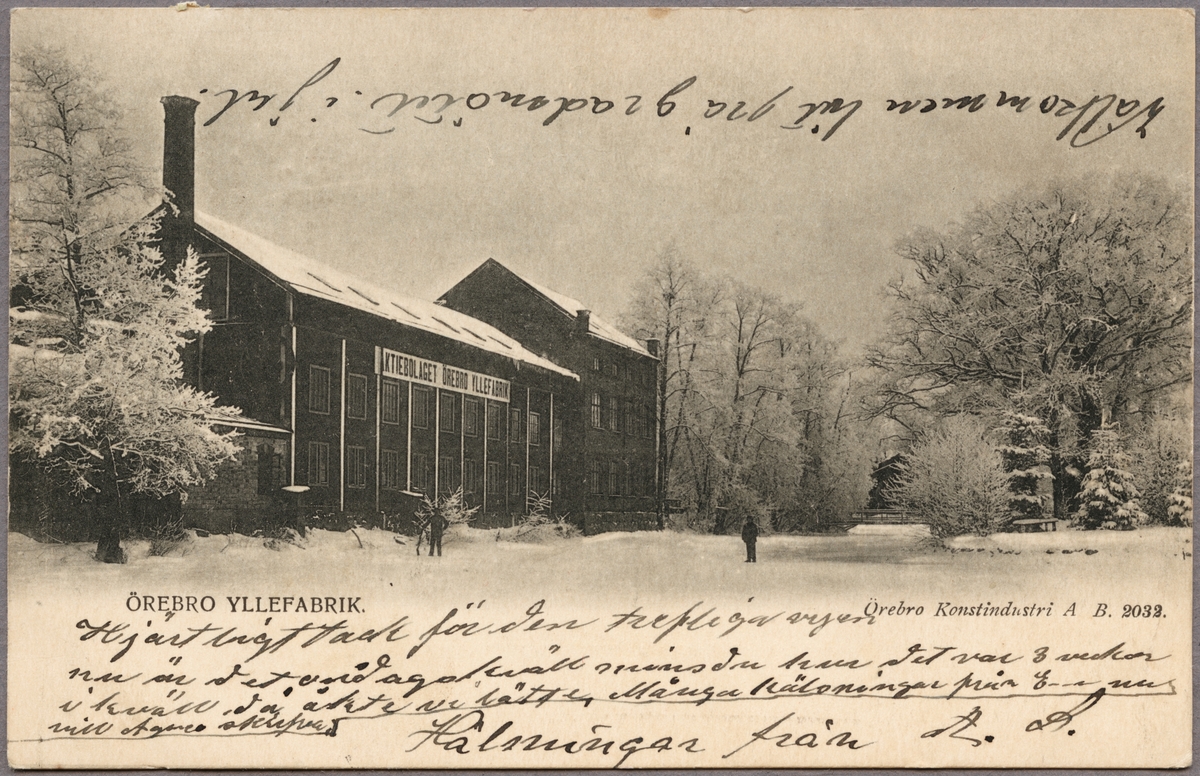 Välkommen hit på gradsnötit. i jul.
AKTIEBOLAGET ÖREBRO YLLEFABRIK
ÖREBRO YLLEFABRIK.
Örebro Konstindustri A B. 2032.
Hjärtligt tack för den trefliga vyen
nu är det onsdagskväll minns du hur det var 3 veckor
i kväll då åkte vi båtte, Många hälsningar från E-n nu
vill Agnes skrifva.
Hälsningar från A. B.